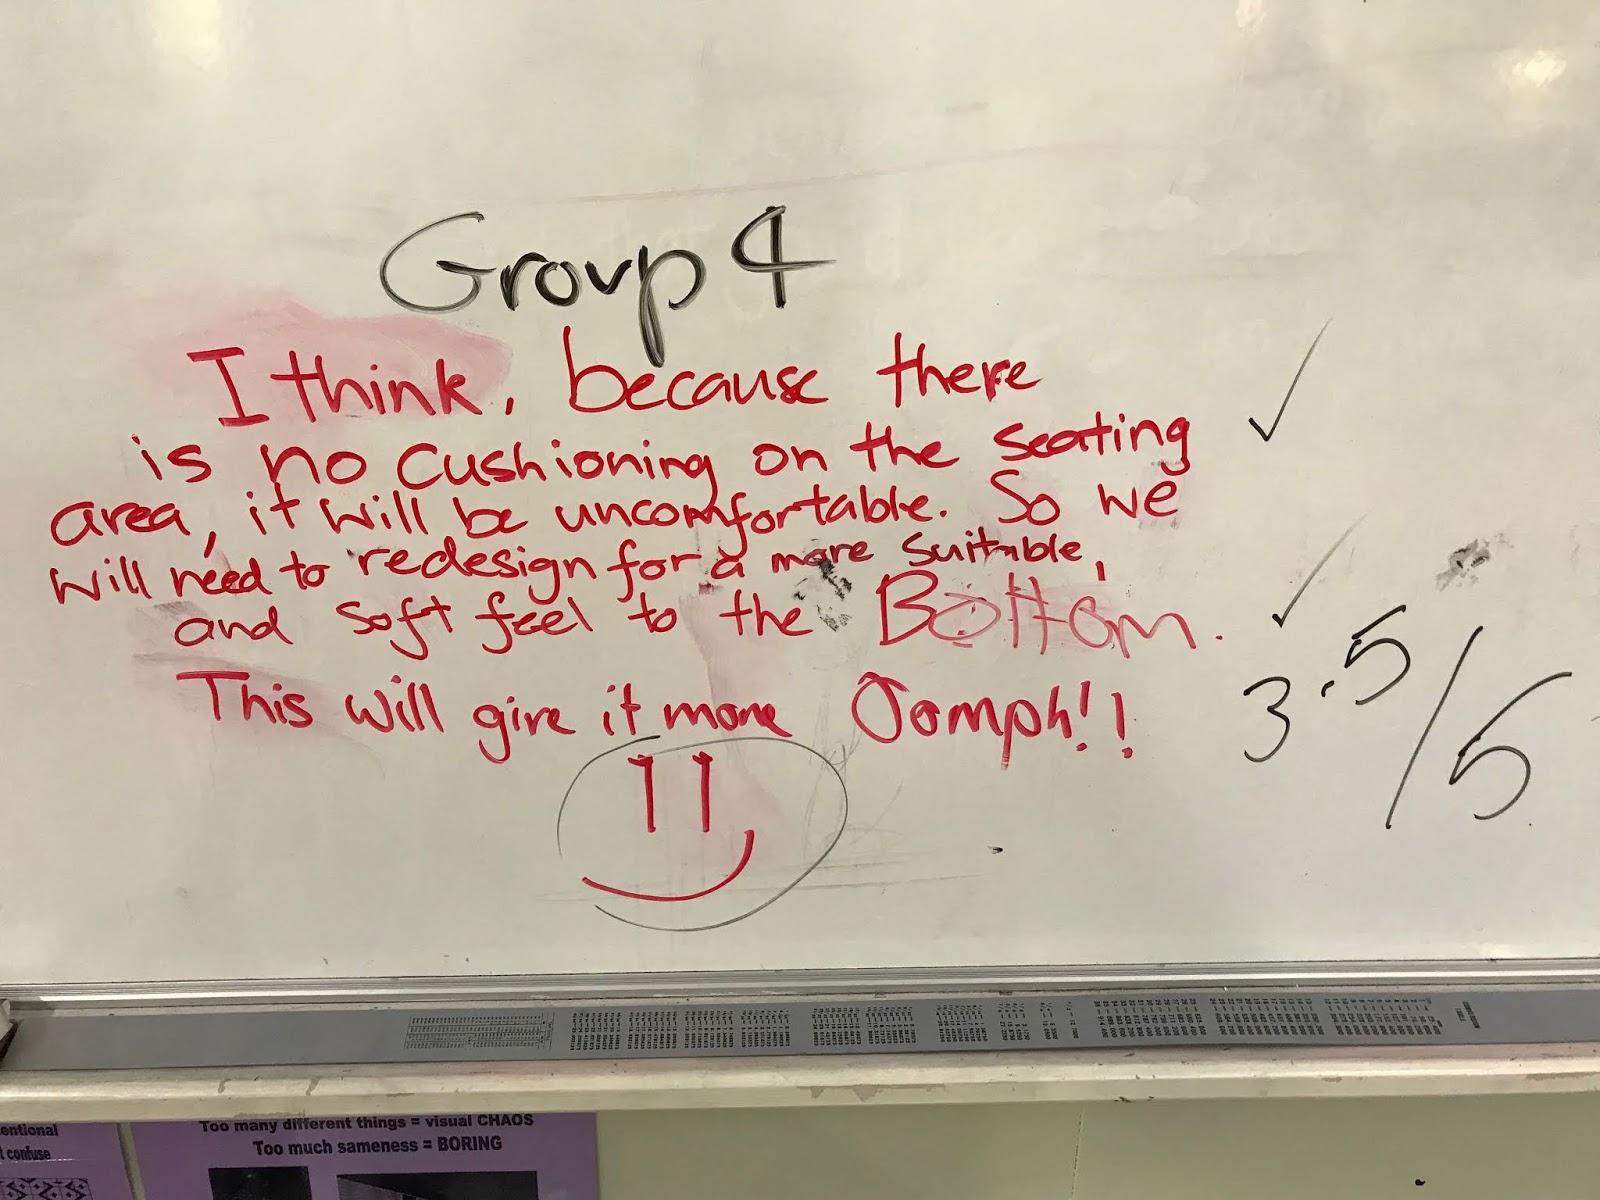 Group 4
I think, because there
is no cushioning on the seating
area, it will be uncomfortable. So we
will need to redesign for a more suitable,
and soft feel to the Bottom.
This will give it more Oomph!!
3.5/5
Too many different things = visual CHAOS
Too much sameness = BORING
entional
t confuse